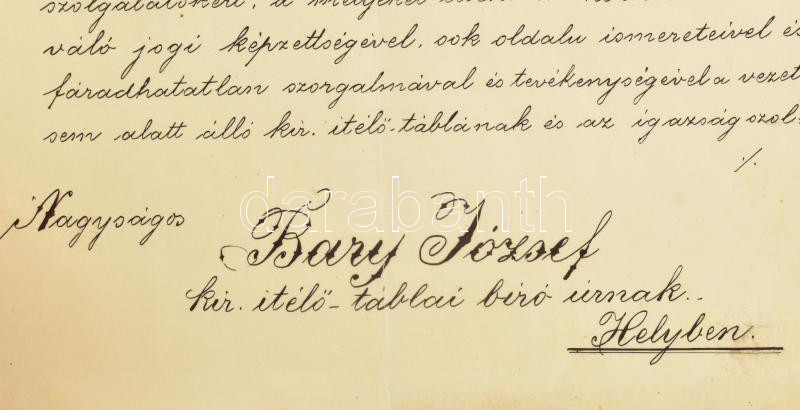 szolgálatokért, a melyeket
váló jogi képzettségével, sok oldalu ismereteivel és
fáradhatatlan szorgalmával és tevékenységével a vezet
sem alatt álló kir. itélő-táblának és az igazság szol-
./.
Nagyságos
Bary József
kir. itélő-táblai biró úrnak.
Helyben.
darabanth